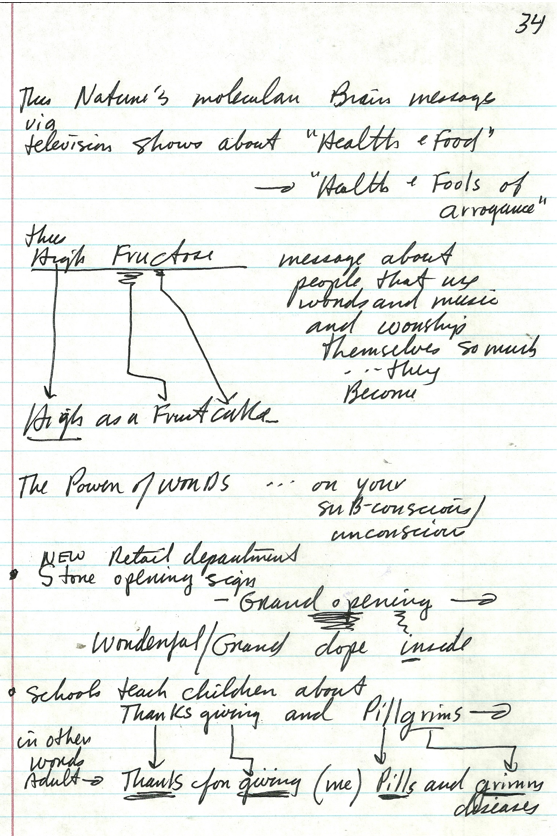 34
Thus Nature's molecular Brain message
via
television shows about "Health & Food"
→ "Health & Fools of
arrogance"
thus
High Fructose
message about
people that use
words and music
and worship
themselves so much
... they
Become
High as a Fruitcake
The Power of words ... on your
sub-conscious/
unconscious
• NEW Retail department
Store opening sign
- Grand opening →
Wonderful/Grand dope inside
• Schools teach children about
Thanks giving and Pillgrims →
in other
words
Adult → Thanks for giving (me) Pills and grimm
diseases